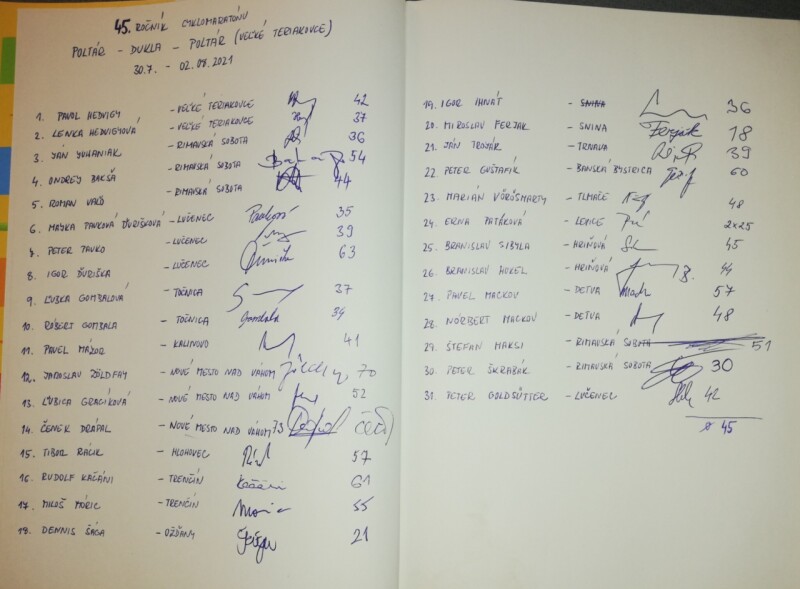 45. ROČNÍK CYKLOMARATÓNU
POLTÁR - DUKLA - POLTÁR (VEĽKÉ TERIAKOVCE)
30.7. - 02.08.2021
1. PAVOL HEDVIGY - VEĽKÉ TERIAKOVCE 42
2. LENKA HEDVIGYOVÁ - VEĽKÉ TERIAKOVCE 37
3. JÁN JUHANIAK - RIMAVSKÁ SOBOTA 36
4. ONDREJ BAKŠA - RIMAVSKÁ SOBOTA 54
5. ROMAN VAKO - RIMAVSKÁ SOBOTA 44
6. MAJKA PAVKOVÁ ĎURIŠKOVÁ - LUČENEC 35
7. PETER PAVKO - LUČENEC 39
8. IGOR ĎURIŠKA - LUČENEC 63
9. ĽUBKA GOMBALOVÁ - TOČNICA 37
10. RÓBERT GOMBALA - TOČNICA 34
11. PAVEL MÁZOR - KALINOVO 41
12. JAROSLAV ZÖLDFAY - NOVÉ MESTO NAD VÁHOM 70
13. ĽUBICA GRACÍKOVÁ - NOVÉ MESTO NAD VÁHOM 52
14. ČENEK DRÁPAL - NOVÉ MESTO NAD VÁHOM 73
15. TIBOR RÁCIK - HLOHOVEC 57
16. RUDOLF KAČÁNI - TRENČÍN 61
17. MILOŠ MÓRIC - TRENČÍN 55
18. DENNIS ŠÁGA - OŽĎANY 21
19. IGOR IHNÁT - SNINA 36
20. MIROSLAV FERJAK - SNINA Ferjak 18
21. JÁN TROJÁK - TRNAVA 39
22. PETER GUŠTAFÍK - BANSKÁ BYSTRICA 60
23. MARIÁN VÖRÖSMARTY - TLMAČE 48
24. ERNA PATÁKOVÁ - LEVICE 2x25
25. BRANISLAV SIBYLA - HRIŇOVÁ 45
26. BRANISLAV HUKEL - HRIŇOVÁ 44
27. PAVEL MACKOV - DETVA 57
28. NORBERT MACKOV - DETVA 48
29. ŠTEFAN MAKSI - RIMAVSKÁ SOBOTA 51
30. PETER ŠKRABÁK - RIMAVSKÁ SOBOTA 30
31. PETER GOLDSÜTTER - LUČENEC 42
ø 45